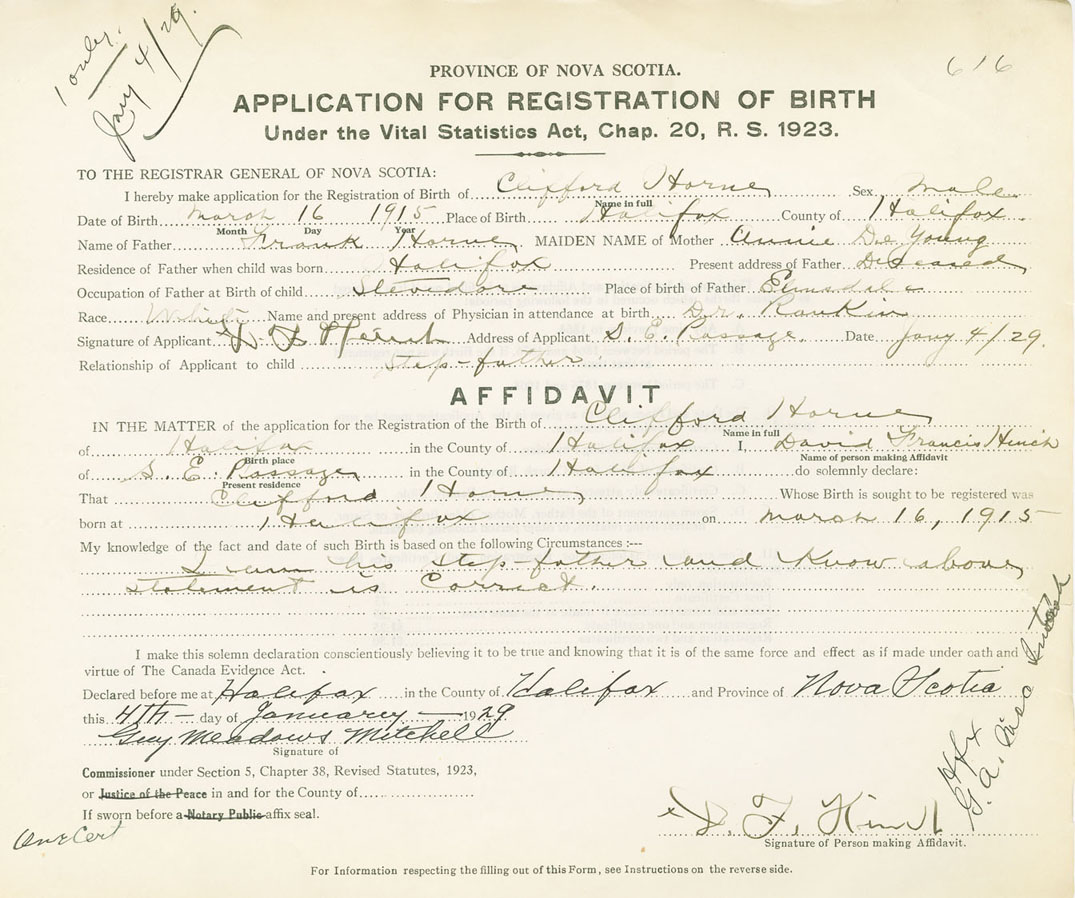 1 only.
Jany 4/29.
616
PROVINCE OF NOVA SCOTIA.
APPLICATION FOR REGISTRATION OF BIRTH
Under the Vital Statistics Act, Chap. 20, R. S. 1923.
TO THE REGISTRAR GENERAL OF NOVA SCOTIA:
I hereby make application for the Registration of Birth of Clifford Horne Sex Male
Name in full
Date of Birth March 16 1915 Place of Birth Halifax County of Halifax
Month Day Year
Name of Father Frank Horne MAIDEN NAME of Mother Annie De Young
Residence of Father when child was born Halifax Present address of Father Deceased
Occupation of Father at Birth of child Stevidore Place of birth of Father Elmsdale
Race White Name and present address of Physician in attendance at birth Dr. Rankin
Signature of Applicant D F Address of Applicant S. E. Passage. Date Jany 4/29.
Relationship of Applicant to child step-father
AFFIDAVIT
IN THE MATTER of the application for the Registration of Birth of Clifford Horne
Name in full
of Halifax in the County of Halifax I, David Francis Hinch
Birth place Name of person making Affidavit
of S. E. Passage in the County of Halifax do solemnly declare:
Present residence
That Clifford Horne Whose Birth is sought to be registered was
born at Halifax on March 16, 1915
My knowledge of the fact and date of such Birth is based on the following Circumstances :---
I am his step-father and know above
statement is correct.
I make this solemn declaration conscientiously believing it to be true and knowing that it is of the same force and effect as if made under oath and
virtue of The Canada Evidence Act.
Declared before me at Halifax in the County of Halifax and Province of Nova Scotia
this 4th - day of January - 1929
Guy Meadows Mitchell
Signature of
Commissioner under Section 5, Chapter 38, Revised Statutes, 1923,
or Justice of the Peace in and for the County of
If sworn before a Notary Public affix seal.
One Cert
D. F. Hinch
Signature of Person making Affidavit.
Hfx
G. A.
For Information respecting the filling out of this Form, see Instructions on the reverse side.